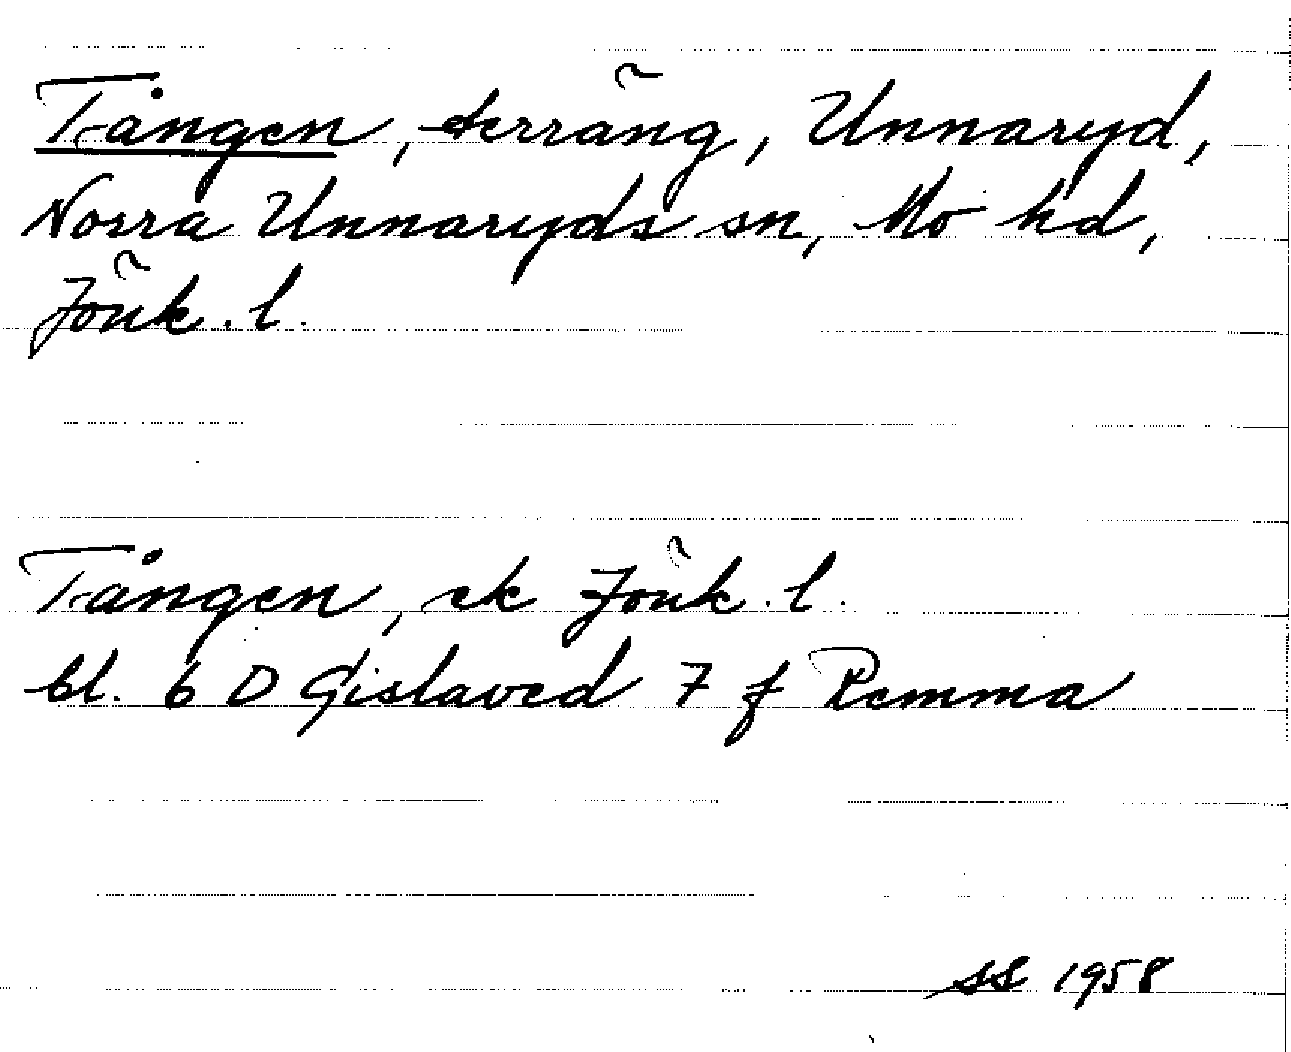 Tången, terräng, Unnaryd,
Norra Unnaryds sn, Mo hd,
Jönk. l.
Tången, ek Jönk. l.
bl. 6 D Gislaved 7 f Remma
SS 1958